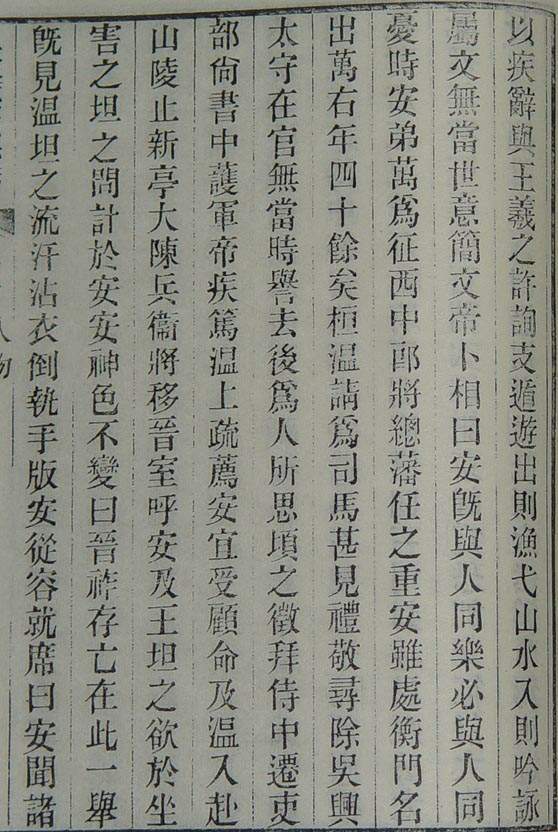 以疾辭與王羲之許詢支遁遊出則漁弋山水入則吟詠
屬文無當世意簡文帝卜相曰安旣與人同樂必與人同
憂時安弟萬爲征西中郎將總藩任之重安雖處衡門名
出萬右年四十餘矣桓溫請爲司馬甚見禮敬尋除吳興
太守在官無當時譽去後爲人所思頃之徵拜侍中遷吏
部尙書中護軍帝疾篤溫上疏薦安宜受顧命及溫入赴
山陵止新亭大陳兵衞將移晉室呼安及王坦之欲於坐
害之坦之問計於安安神色不變曰晉祚存亡在此一舉
旣見溫坦之流汗沾衣倒執手版安從容就席曰安聞諸
人物